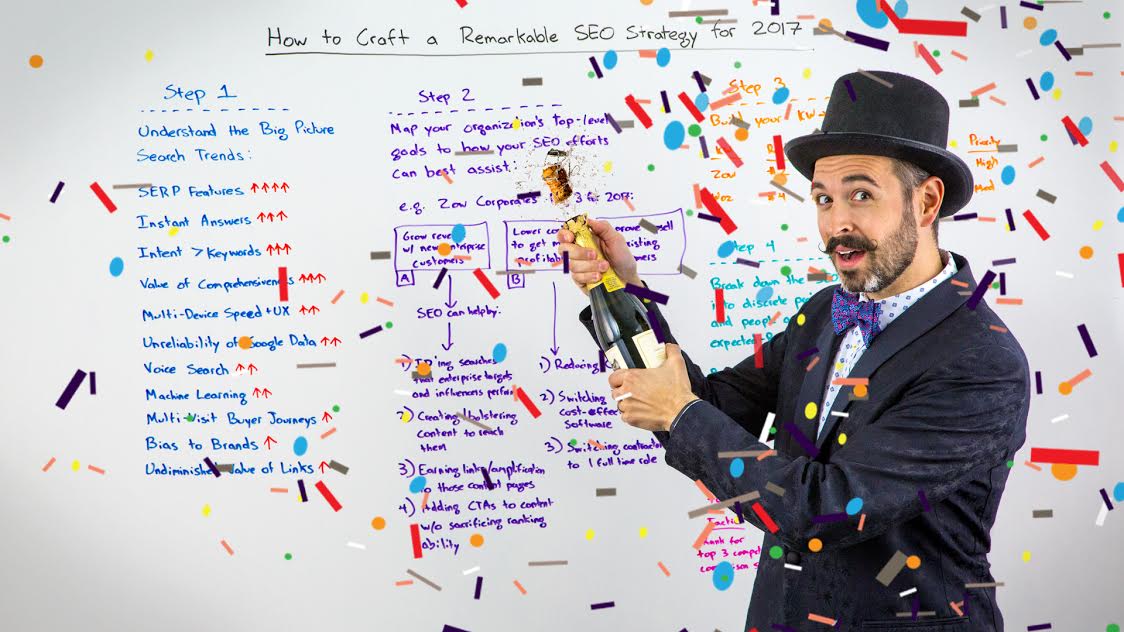 How to Craft a Remarkable SEO Strategy for 2017
Step 1
Understand the Big Picture
Search Trends:
SERP Features ↑↑↑↑
Instant Answers ↑↑↑
Intent > Keywords ↑↑↑
Value of Comprehensiveness ↑↑↑
Multi-Device Speed + UX ↑↑
Unreliability of Google Data ↑↑
Voice Search ↑↑
Machine Learning ↑↑
Multi-Visit Buyer Journeys ↑
Bias to Brands ↑
Undiminished Value of Links ↑
Step 2
Map your organization's top-level
goals to how your SEO efforts
can best assist:
e.g. Zow 3 for 2017:
Grow
w/ new enterprise
customers
A
Lower
to get
B
sell
SEO can help by:
1) searches
that enterprise targets
and influencers
2) Creating/bolstering
content to reach
them
3) Earning links/amplification
to those content pages
4) Adding CTAs to content
w/o sacrificing ranking
ability
1) Reducing
2) Switching
Software
3) Switching
to 1 full time role
Step 3
Build your KW
Priority
Zow
High
#4
Med
Step 4
Break down the SEO
into discrete
and people
for
top 3